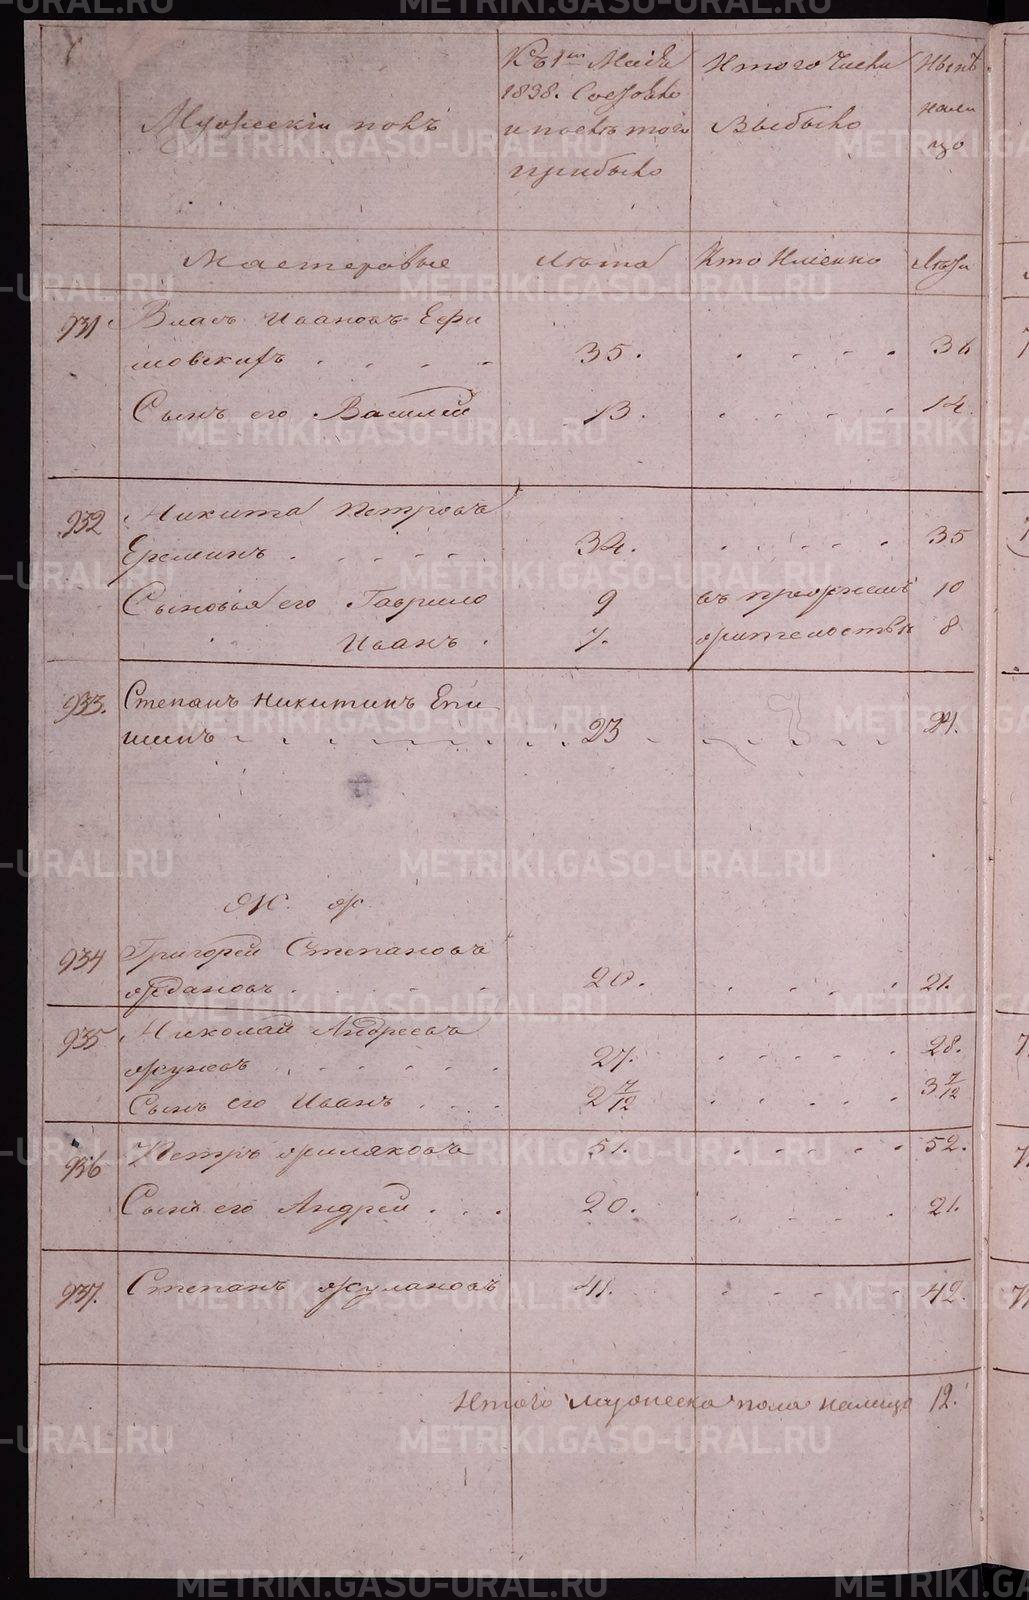 Мужескiй полъ
Къ 1ое Маiя
1838. Состояло
и послѣ того
прибыло
Изтого числа
Выбыло
Нынѣ
нали
цо
Мастеровые
Лѣта
Кто Именно
Лѣта
931 Власъ Ивановъ Ефи
мовскихъ 35. 36
Сынъ его Василей 13. 14.
932 Никита Петровъ
Ереминъ 34. 35
Сыновья его Гаврило 9 10
Иванъ 7. 8
933. Степанъ Никитинъ Епи
шинъ 23 24.
Ж. ж.
934 Григорей Степановъ
Ждановъ 20. 21.
935 Николай Андреевъ
27. 28.
Сынъ его Иванъ 2 7/12 3 7/12
936 Петръ 51. 52.
Сынъ его Андрей 20. 21.
937. Степанъ Жулановъ 41. 42.
Итого мужеска пола налицо 12.
METRIKI.GASO-URAL.RU